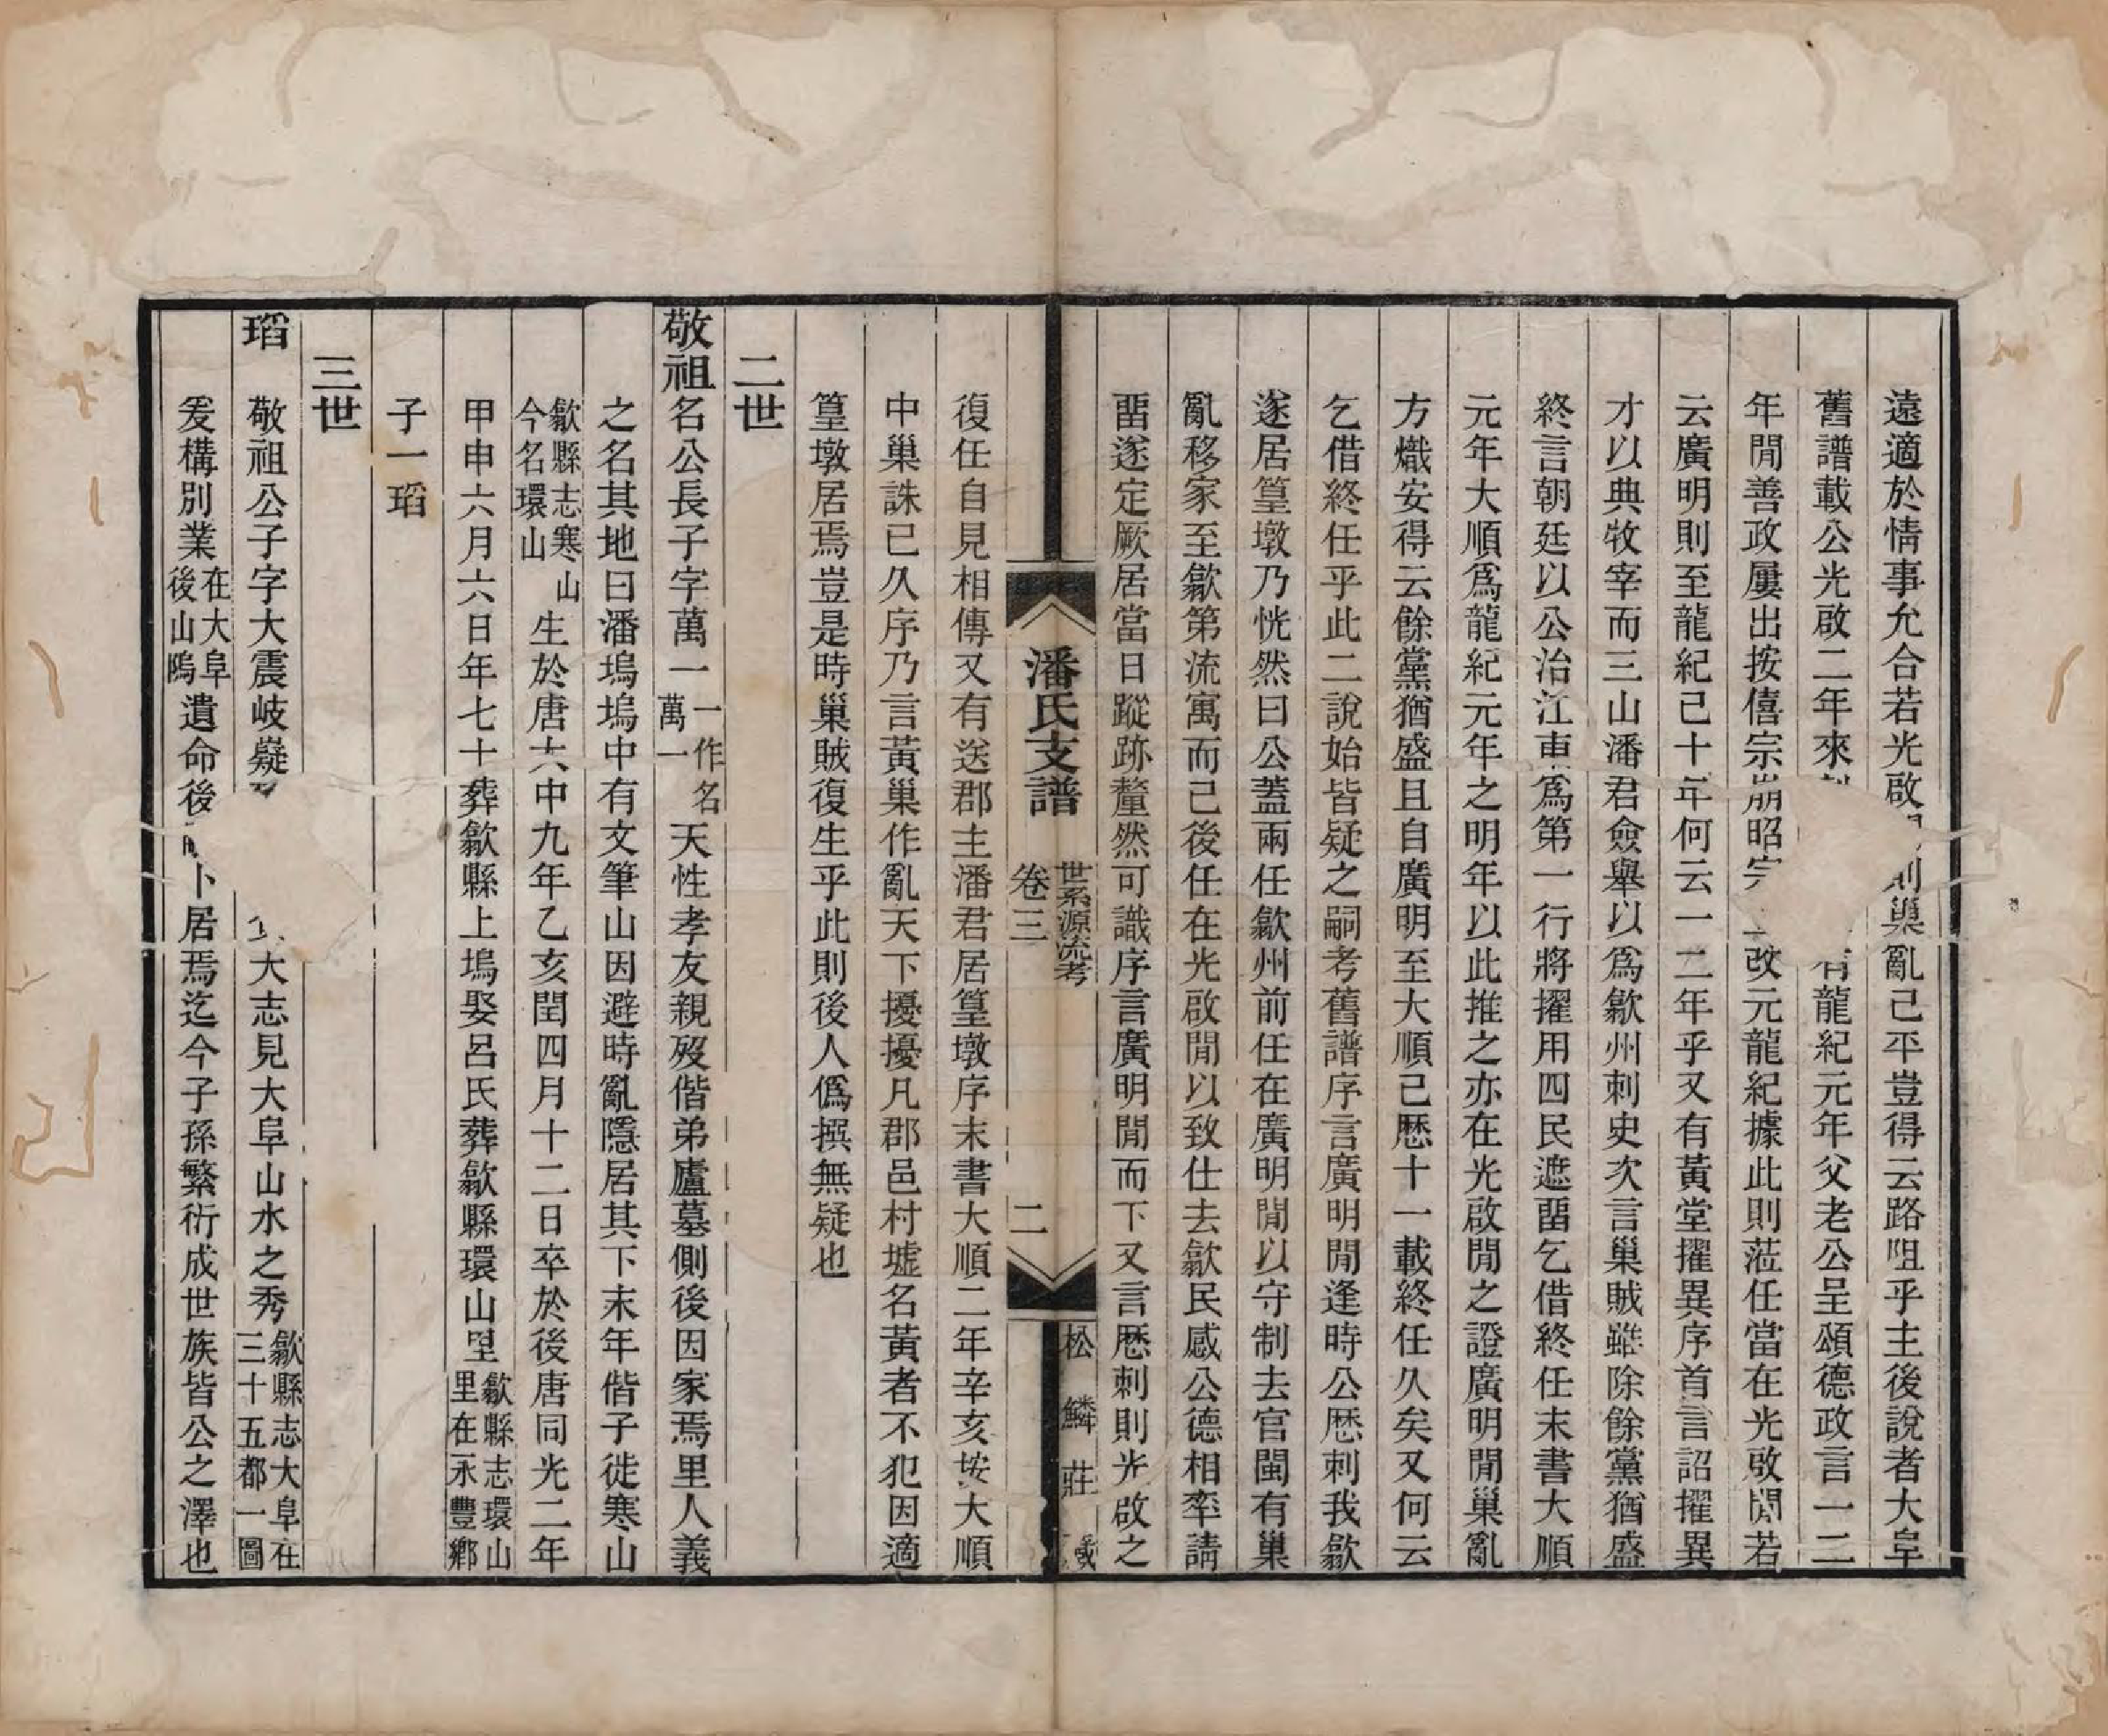 遠適於情事允合若光啟則巢亂已平豈得云路阻乎主後說者大阜
舊譜載公光啟二年來有龍紀元年父老公呈頌德政言一二
年閒善政屢出按僖宗崩昭宗改元龍紀據此則蒞任當在光啟閒若
云廣明則至龍紀已十年何云一二年乎又有黃堂擢異序首言詔擢異
才以典牧宰而三山潘君僉舉以爲歙州刺史次言巢賊雖除餘黨猶盛
終言朝廷以公治江東爲第一行將擢用四民遮畱乞借終任末書大順
元年大順爲龍紀元年之明年以此推之亦在光啟閒之證廣明閒巢亂
方熾安得云餘黨猶盛且自廣明至大順已歷十一載終任久矣又何云
乞借終任乎此二說始皆疑之嗣考舊譜序言廣明閒逢時公歷刺我歙
遂居篁墩乃恍然曰公蓋兩任歙州前任在廣明閒以守制去官閩有巢
亂移家至歙第流寓而已後任在光啟閒以致仕去歙民感公德相率請
畱遂定厥居當日蹤跡釐然可識序言廣明閒而下又言歷刺則光啟之
潘氏支譜 世系源流考
卷三 二 松鱗莊
復任自見相傳又有送郡主潘君居篁墩序末書大順二年辛亥按大順
中巢誅已久序乃言黃巢作亂天下擾擾凡郡邑村墟名黃者不犯因適
篁墩居焉豈是時巢賊復生乎此則後人僞撰無疑也
二世
敬祖名公長子字萬一一作名萬一天性孝友親歿偕弟廬墓側後因家焉里人義
之名其地曰潘塢塢中有文筆山因避時亂隱居其下末年偕子徙寒山
歙縣志寒山今名環山生於唐大中九年乙亥閏四月十二日卒於後唐同光二年
甲申六月六日年七十葬歙縣上塢娶呂氏葬歙縣環山里歙縣志環山里在永豐鄉
子一瑫
三世
瑫 敬祖公子字大震岐嶷大志見大阜山水之秀歙縣志大阜在三十五都一圖
爰構別業在大阜後山隖遺命後卜居焉迄今子孫繁衍成世族皆公之澤也